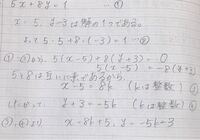 5x+8y=1 …①
x=5, y=-3 は解の1つである。
よって 5・5+8・(-3)=1 …②
①-②より 5(x-5)+8(y+3)=0
5(x-5)=-8(y+3)
5と8は互いに素であるから、
x-5=8k (kは整数)
したがって y+3=-5k (kは整数)
よって x=8k+5, y=-5k-3